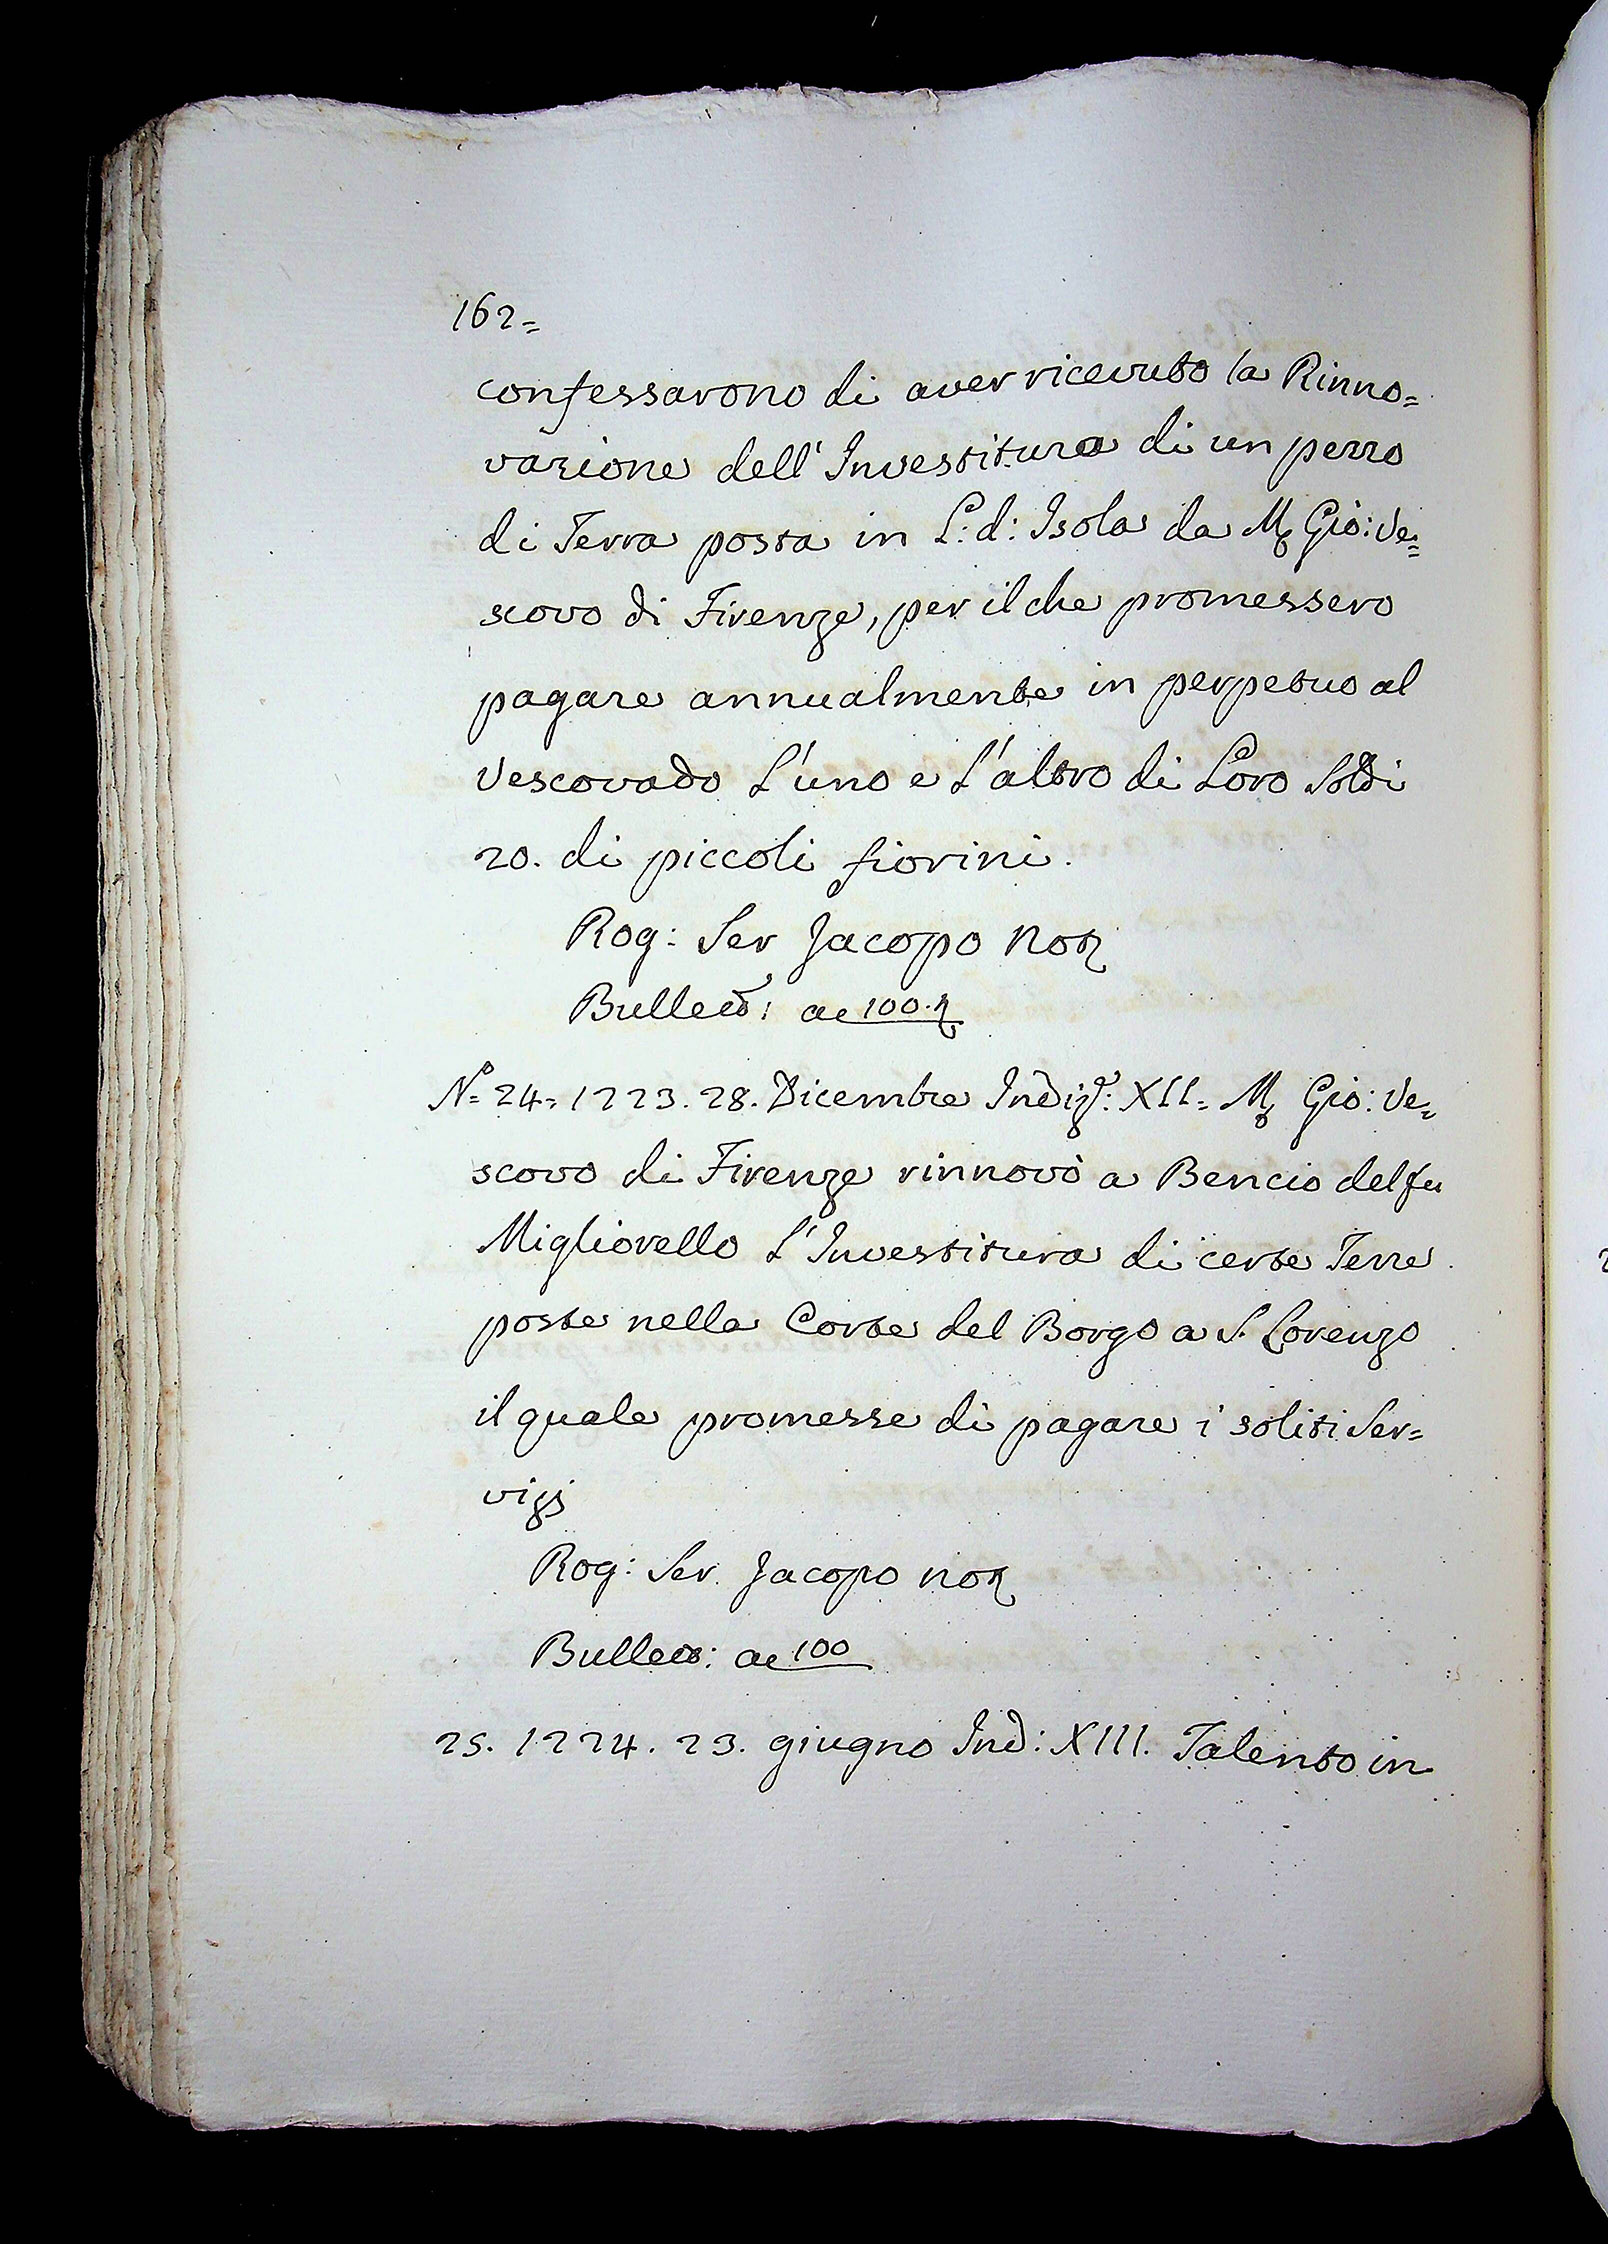 162=
confessarono di aver ricevuto la Rinno=
vazione dell'Investitura di un pezzo
di Terra posta in L: d: Isola da M Gio: Ve=
scovo di Firenze, per il che promessero
pagare annualmente in perpetuo al
Vescovado L'uno e L'altro di Loro Soldi
20. di piccoli fiorini.
Rog: Ser Jacopo Not
Bullett: ac 100.
N° 24= 1223. 28. Dicembre Indiz: XII= M Gio: Ve=
scovo di Firenze rinnovò a Bencio del fu
Migliorello L'Investitura di certe Terre
poste nella Corte del Borgo a S. Lorenzo
il quale promesse di pagare i soliti Ser=
vigj
Rog: Ser Jacopo not
Bullett: ac 100
25. 1224. 23. giugno Ind: XIII. Talento in